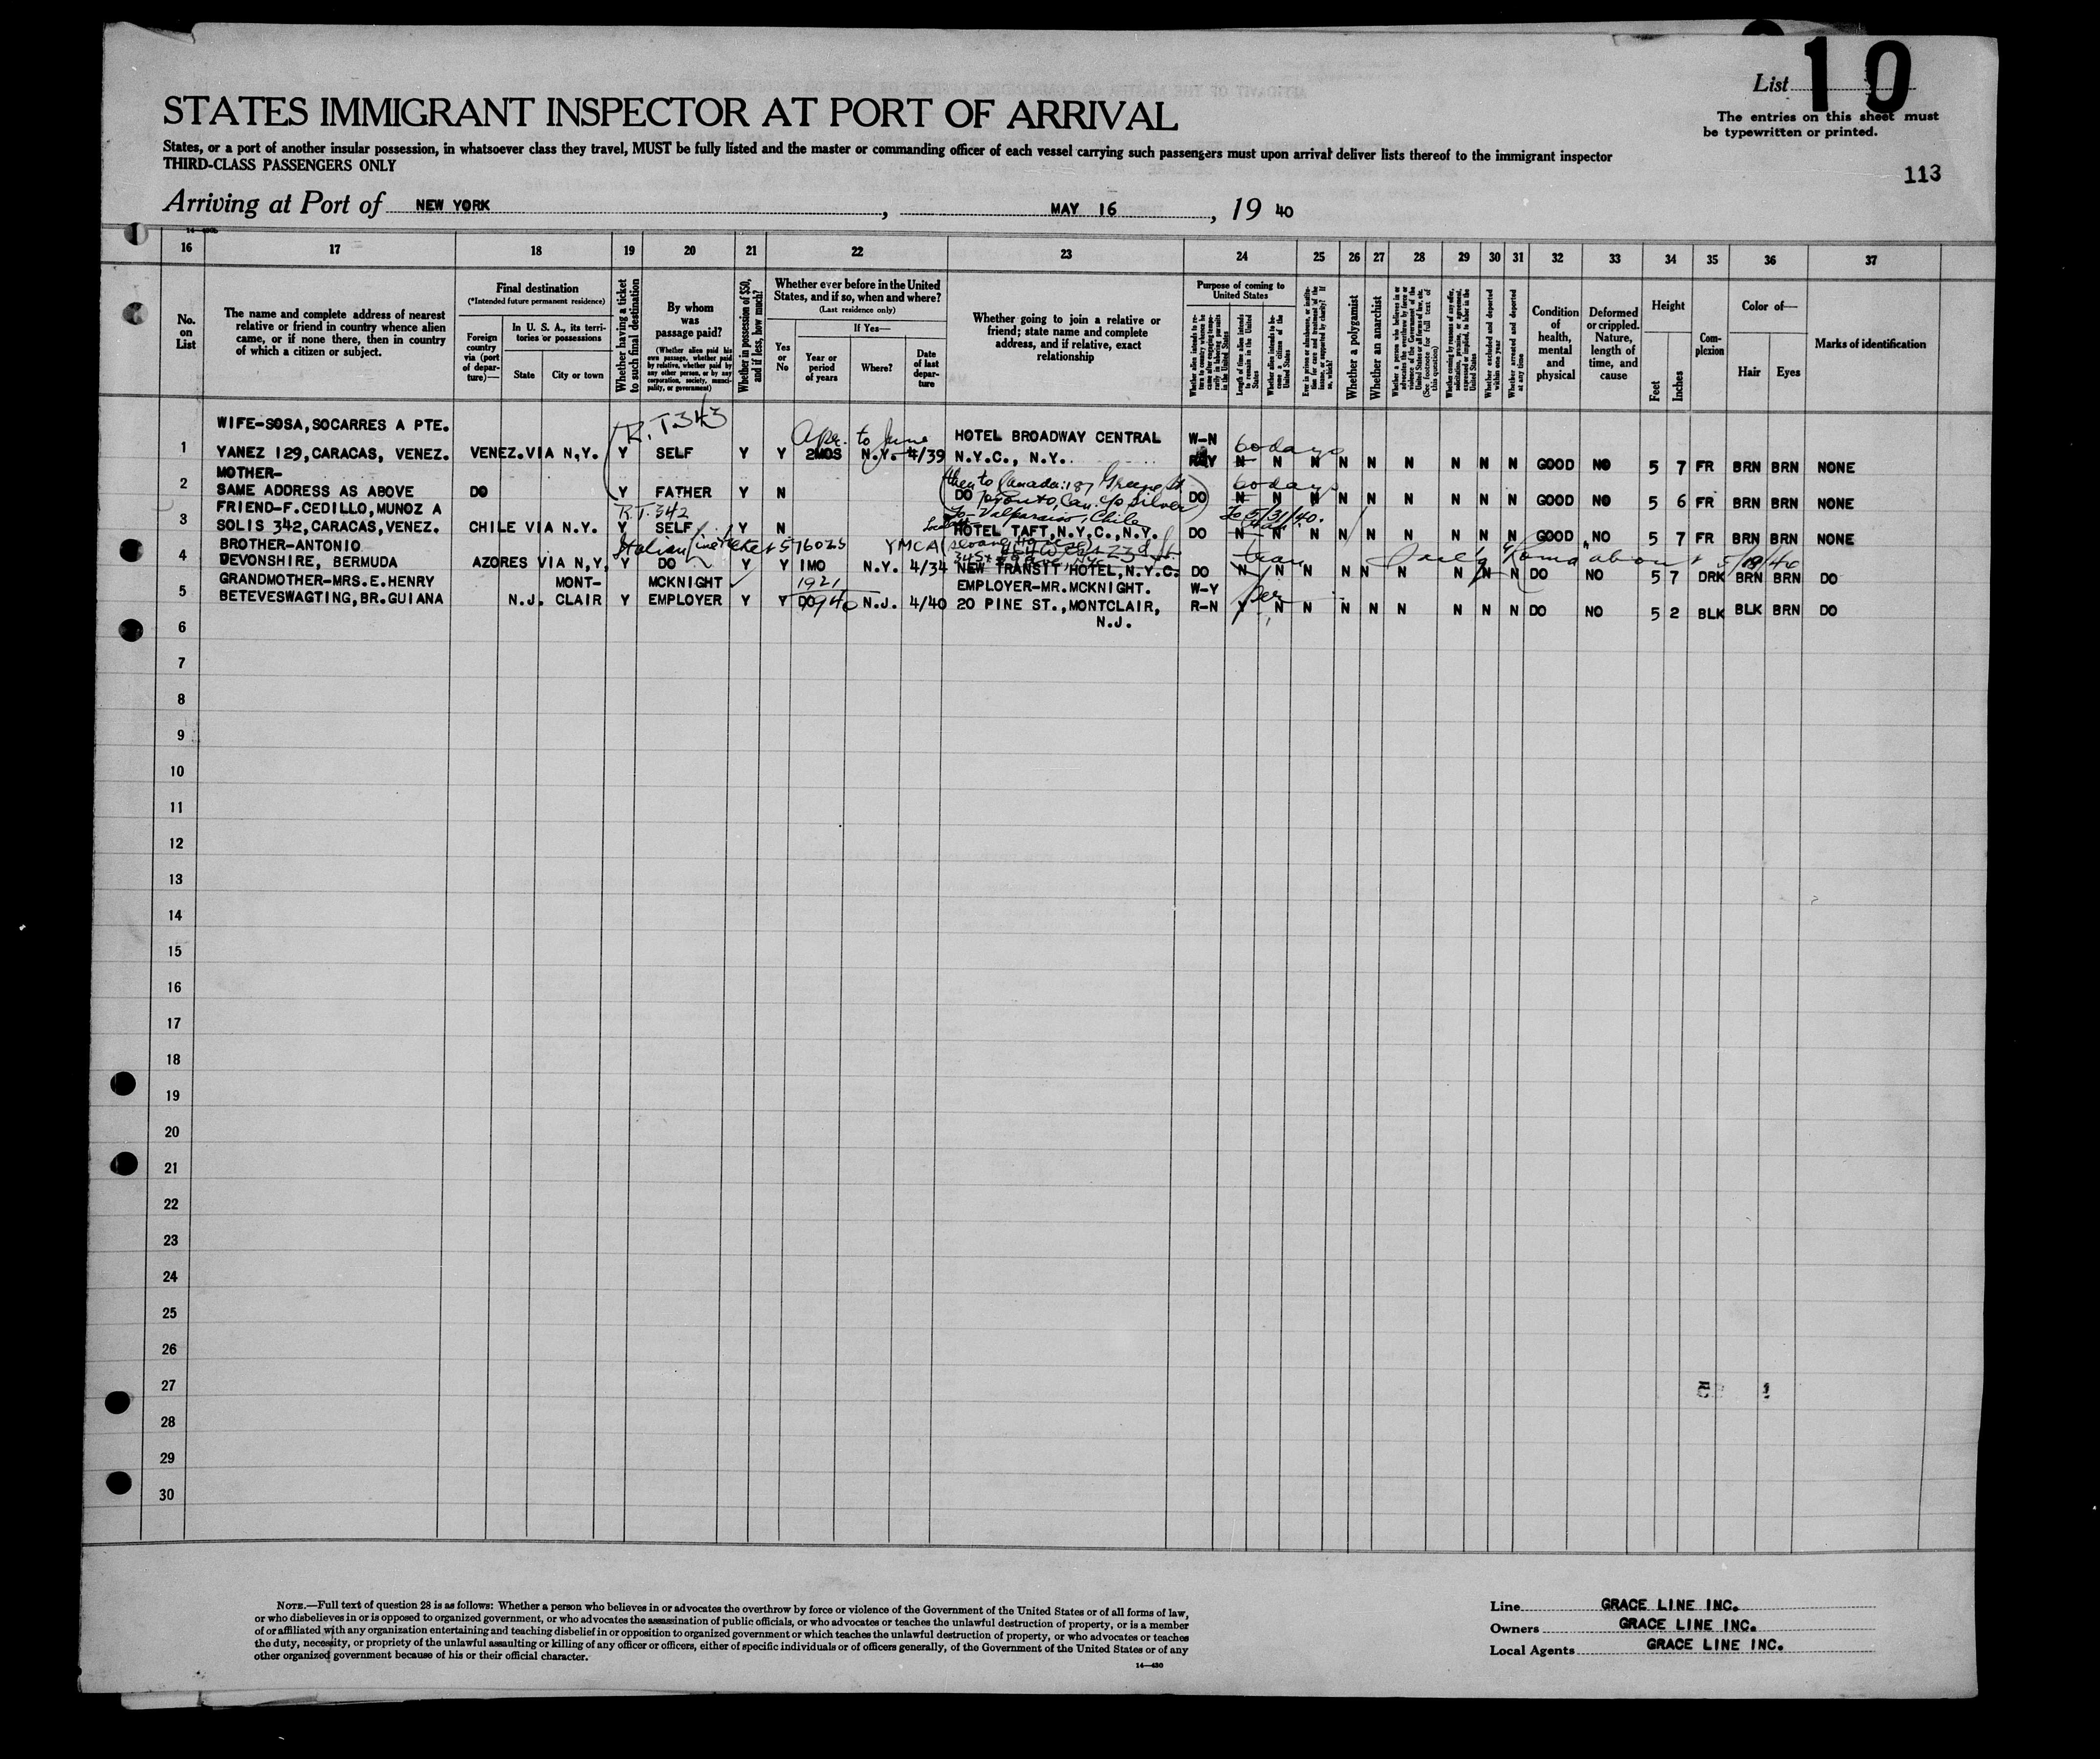 List 10
The entries on this sheet must
be typewritten or printed.
STATES IMMIGRANT INSPECTOR AT PORT OF ARRIVAL
States, or a port of another insular possession, in whatsoever class they travel, MUST be fully listed and the master or commanding officer of each vessel carrying such passengers must upon arrival deliver lists thereof to the immigrant inspector
THIRD-CLASS PASSENGERS ONLY
113
Arriving at Port of NEW YORK, MAY 16, 19 40
16 17 18 19 20 21 22 23 24 25 26 27 28 29 30 31 32 33 34 35 36 37
No. on List
The name and complete address of nearest
relative or friend in country whence alien
came, or if none there, then in country
of which a citizen or subject.
Final destination
(*Intended future permanent residence)
Foreign country via (port of departure)—
In U. S. A., its territories or possessions
State
City or town
Whether having a ticket to such final destination
By whom was passage paid?
(Whether alien paid his own passage, whether paid by relative, whether paid by any other person, or by any corporation, society, municipality, or government)
Whether in possession of $50, and if less, how much?
Whether ever before in the United
States, and if so, when and where?
(Last residence only)
Yes or No
If Yes—
Year or period of years
Where?
Date of last departure
Whether going to join a relative or
friend; state name and complete
address, and if relative, exact
relationship
Purpose of coming to United States
Whether a polygamist
Whether an anarchist
Whether excluded and deported within one year
Whether arrested and deported at any time
Condition of health, mental and physical
Deformed or crippled. Nature, length of time, and cause
Height
Feet
Inches
Complexion
Color of—
Hair
Eyes
Marks of identification
WIFE-SOSA, SOCARRES A PTE.
R.T. 343
Apr. to June
HOTEL BROADWAY CENTRAL W-N 60 days
1 YANEZ 129, CARACAS, VENEZ. VENEZ. VIA N.Y. Y SELF Y Y 2MOS N.Y. 4/39 N.Y.C., N.Y. N N N N N N N N N GOOD NO 5 7 FR BRN BRN NONE
MOTHER-
then to Canada: 187 Greene St 60 days
2 SAME ADDRESS AS ABOVE DO Y FATHER Y N DO Toronto, Can. c/o Silver DO N N N N N N N N N GOOD NO 5 6 FR BRN BRN NONE
FRIEND-F. CEDILLO, MUNOZ A
R.T. 342
To - Valparaiso, Chile
To 5/31/40.
3 SOLIS 342, CARACAS, VENEZ. CHILE VIA N.Y. Y SELF Y N HOTEL TAFT, N.Y.C., N.Y. DO N N N N N N N N N GOOD NO 5 7 FR BRN BRN NONE
BROTHER-ANTONIO
Italian line ticket 576025 YMCA
tran
5/18/40
4 DEVONSHIRE, BERMUDA AZORES VIA N.Y. Y DO Y Y 1MO N.Y. 4/34 NEW TRANSIT HOTEL, N.Y.C. DO N N N N N N N N N DO NO 5 7 DRK BRN BRN DO
GRANDMOTHER-MRS. E. HENRY MONT- MCKNIGHT 1921 EMPLOYER-MR. MCKNIGHT. W-Y Per
5 BETEVESWAGTING, BR. GUIANA N.J. CLAIR Y EMPLOYER Y Y DO 1940 N.J. 4/40 20 PINE ST., MONTCLAIR, R-N Y N N N N N N N N DO NO 5 2 BLK BLK BRN DO
N.J.
6
7
8
9
10
11
12
13
14
15
16
17
18
19
20
21
22
23
24
25
26
27
28
29
30
NOTE.—Full text of question 28 is as follows: Whether a person who believes in or advocates the overthrow by force or violence of the Government of the United States or of all forms of law,
or who disbelieves in or is opposed to organized government, or who advocates the assassination of public officials, or who advocates or teaches the unlawful destruction of property, or is a member
of or affiliated with any organization entertaining and teaching disbelief in or opposition to organized government or which teaches the unlawful destruction of property, or who advocates or teaches
the duty, necessity, or propriety of the unlawful assaulting or killing of any officer or officers, either of specific individuals or of officers generally, of the Government of the United States or of any
other organized government because of his or their official character.
14—430
Line GRACE LINE INC.
Owners GRACE LINE INC.
Local Agents GRACE LINE INC.